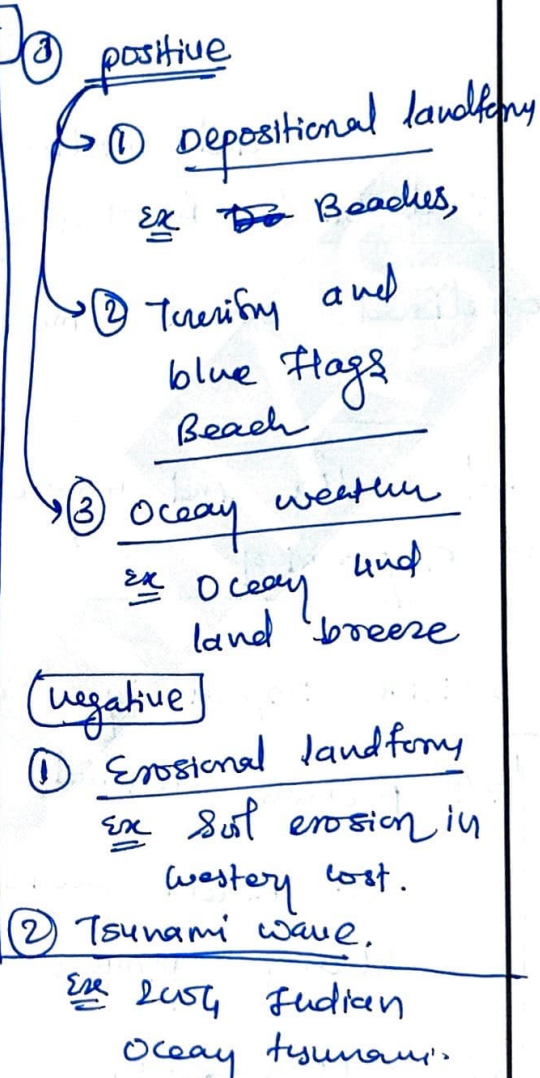 ③ positive
① Depositional landform
Ex Beaches,
② Tourism and
blue Flags
Beach
③ Ocean weather
Ex Ocean and
land breeze
negative
① Erosional landform
Ex Soil erosion in
western cost.
② Tsunami wave.
Ex 2004 Indian
Ocean tsunami.